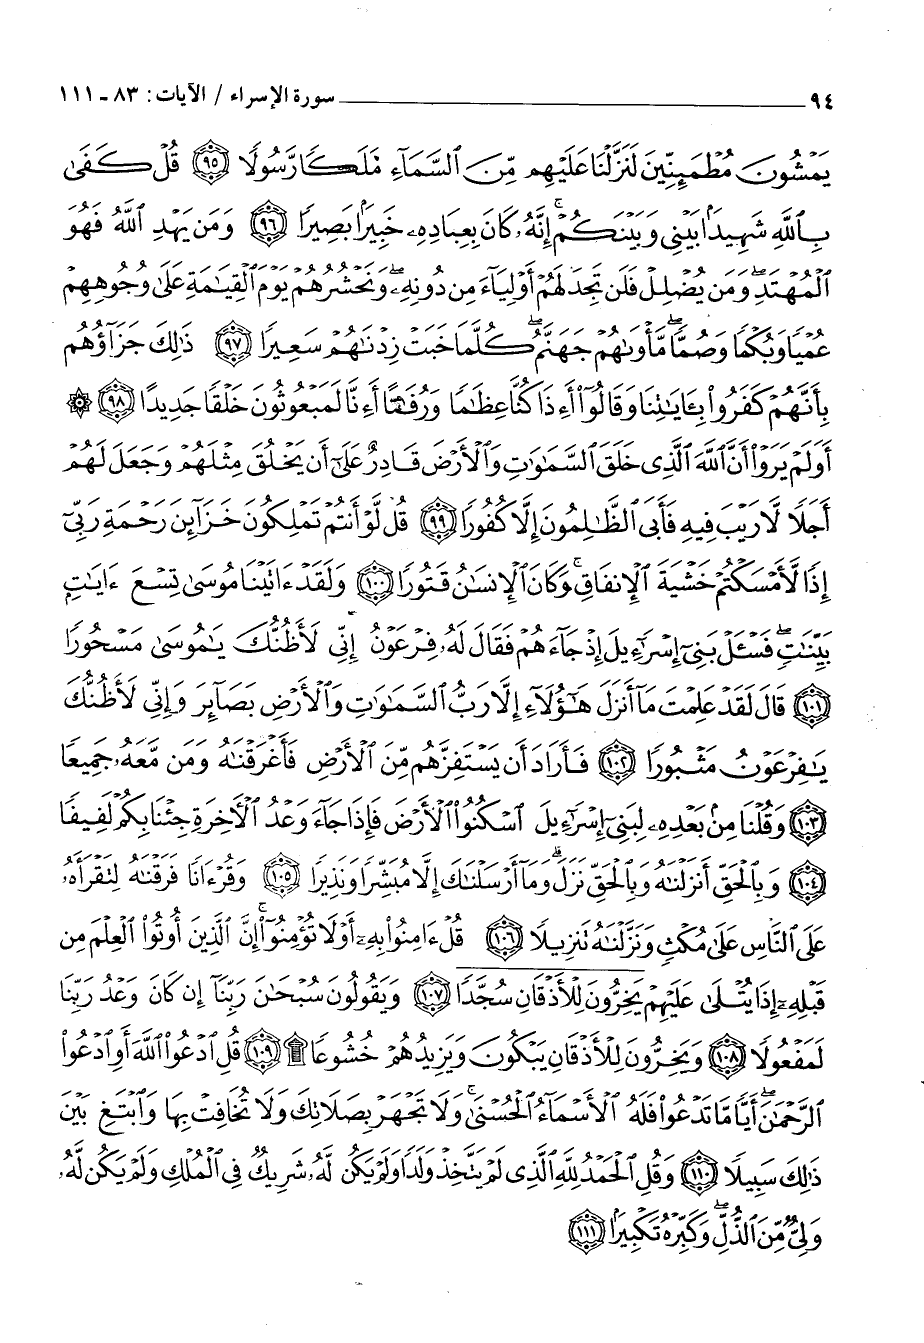 ٩٤ سورة الإسراء / الآيات: ٨٣ ـ ١١١
يَمْشُونَ مُطْمَئِنِّينَ لَنَزَّلْنَا عَلَيْهِم مِّنَ ٱلسَّمَآءِ مَلَكًا رَّسُولًا ﴿٩٥﴾ قُلْ كَفَىٰ
بِٱللَّهِ شَهِيدًۢا بَيْنِى وَبَيْنَكُمْ ۚ إِنَّهُۥ كَانَ بِعِبَادِهِۦ خَبِيرًۢا بَصِيرًا ﴿٩٦﴾ وَمَن يَهْدِ ٱللَّهُ فَهُوَ
ٱلْمُهْتَدِ ۖ وَمَن يُضْلِلْ فَلَن تَجِدَ لَهُمْ أَوْلِيَآءَ مِن دُونِهِۦ ۖ وَنَحْشُرُهُمْ يَوْمَ ٱلْقِيَٰمَةِ عَلَىٰ وُجُوهِهِمْ
عُمْيًا وَبُكْمًا وَصُمًّا ۖ مَّأْوَىٰهُمْ جَهَنَّمُ ۖ كُلَّمَا خَبَتْ زِدْنَٰهُمْ سَعِيرًا ﴿٩٧﴾ ذَٰلِكَ جَزَآؤُهُم
بِأَنَّهُمْ كَفَرُوا۟ بِـَٔايَٰتِنَا وَقَالُوٓا۟ أَءِذَا كُنَّا عِظَٰمًا وَرُفَٰتًا أَءِنَّا لَمَبْعُوثُونَ خَلْقًا جَدِيدًا ﴿٩٨﴾ ۞
أَوَلَمْ يَرَوْا۟ أَنَّ ٱللَّهَ ٱلَّذِى خَلَقَ ٱلسَّمَٰوَٰتِ وَٱلْأَرْضَ قَادِرٌ عَلَىٰٓ أَن يَخْلُقَ مِثْلَهُمْ وَجَعَلَ لَهُمْ
أَجَلًا لَّا رَيْبَ فِيهِ فَأَبَى ٱلظَّٰلِمُونَ إِلَّا كُفُورًا ﴿٩٩﴾ قُل لَّوْ أَنتُمْ تَمْلِكُونَ خَزَآئِنَ رَحْمَةِ رَبِّىٓ
إِذًا لَّأَمْسَكْتُمْ خَشْيَةَ ٱلْإِنفَاقِ ۚ وَكَانَ ٱلْإِنسَٰنُ قَتُورًا ﴿١٠٠﴾ وَلَقَدْ ءَاتَيْنَا مُوسَىٰ تِسْعَ ءَايَٰتٍۭ
بَيِّنَٰتٍ ۖ فَسْـَٔلْ بَنِىٓ إِسْرَٰٓءِيلَ إِذْ جَآءَهُمْ فَقَالَ لَهُۥ فِرْعَوْنُ إِنِّى لَأَظُنُّكَ يَٰمُوسَىٰ مَسْحُورًا
﴿١٠١﴾ قَالَ لَقَدْ عَلِمْتَ مَآ أَنزَلَ هَٰٓؤُلَآءِ إِلَّا رَبُّ ٱلسَّمَٰوَٰتِ وَٱلْأَرْضِ بَصَآئِرَ وَإِنِّى لَأَظُنُّكَ
يَٰفِرْعَوْنُ مَثْبُورًا ﴿١٠٢﴾ فَأَرَادَ أَن يَسْتَفِزَّهُم مِّنَ ٱلْأَرْضِ فَأَغْرَقْنَٰهُ وَمَن مَّعَهُۥ جَمِيعًا
﴿١٠٣﴾ وَقُلْنَا مِنۢ بَعْدِهِۦ لِبَنِىٓ إِسْرَٰٓءِيلَ ٱسْكُنُوا۟ ٱلْأَرْضَ فَإِذَا جَآءَ وَعْدُ ٱلْأَخِرَةِ جِئْنَا بِكُمْ لَفِيفًا
﴿١٠٤﴾ وَبِٱلْحَقِّ أَنزَلْنَٰهُ وَبِٱلْحَقِّ نَزَلَ ۗ وَمَآ أَرْسَلْنَٰكَ إِلَّا مُبَشِّرًا وَنَذِيرًا ﴿١٠٥﴾ وَقُرْءَانًا فَرَقْنَٰهُ لِتَقْرَأَهُۥ
عَلَى ٱلنَّاسِ عَلَىٰ مُكْثٍ وَنَزَّلْنَٰهُ تَنزِيلًا ﴿١٠٦﴾ قُلْ ءَامِنُوا۟ بِهِۦٓ أَوْ لَا تُؤْمِنُوٓا۟ ۚ إِنَّ ٱلَّذِينَ أُوتُوا۟ ٱلْعِلْمَ مِن
قَبْلِهِۦٓ إِذَا يُتْلَىٰ عَلَيْهِمْ يَخِرُّونَ لِلْأَذْقَانِ سُجَّدًا ﴿١٠٧﴾ وَيَقُولُونَ سُبْحَٰنَ رَبِّنَآ إِن كَانَ وَعْدُ رَبِّنَا
لَمَفْعُولًا ﴿١٠٨﴾ وَيَخِرُّونَ لِلْأَذْقَانِ يَبْكُونَ وَيَزِيدُهُمْ خُشُوعًا ۩ ﴿١٠٩﴾ قُلِ ٱدْعُوا۟ ٱللَّهَ أَوِ ٱدْعُوا۟
ٱلرَّحْمَٰنَ ۖ أَيًّا مَّا تَدْعُوا۟ فَلَهُ ٱلْأَسْمَآءُ ٱلْحُسْنَىٰ ۚ وَلَا تَجْهَرْ بِصَلَاتِكَ وَلَا تُخَافِتْ بِهَا وَٱبْتَغِ بَيْنَ
ذَٰلِكَ سَبِيلًا ﴿١١٠﴾ وَقُلِ ٱلْحَمْدُ لِلَّهِ ٱلَّذِى لَمْ يَتَّخِذْ وَلَدًا وَلَمْ يَكُن لَّهُۥ شَرِيكٌ فِى ٱلْمُلْكِ وَلَمْ يَكُن لَّهُۥ
وَلِىٌّ مِّنَ ٱلذُّلِّ ۖ وَكَبِّرْهُ تَكْبِيرًۢا ﴿١١١﴾